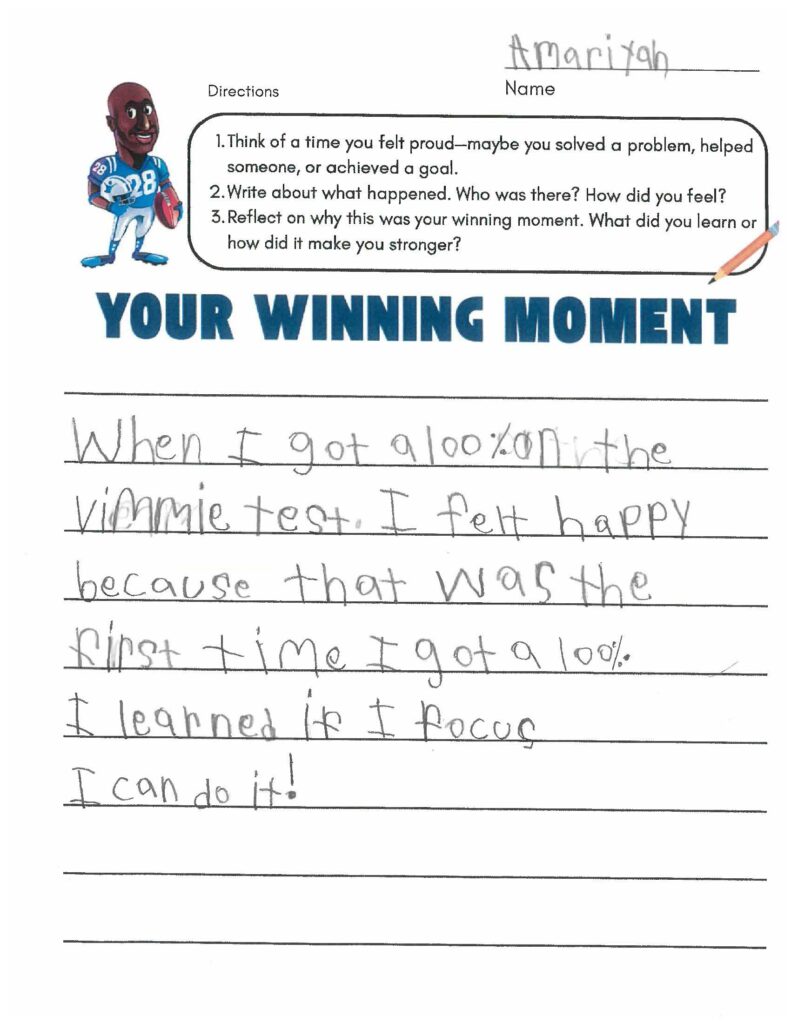 Amariyah
Directions
Name
1. Think of a time you felt proud—maybe you solved a problem, helped
someone, or achieved a goal.
2. Write about what happened. Who was there? How did you feel?
3. Reflect on why this was your winning moment. What did you learn or
how did it make you stronger?
28
28
YOUR WINNING MOMENT
When I got a 100% on the
vimmie test. I felt happy
because that was the
first time I got a 100%.
I learned if I focus
I can do it!